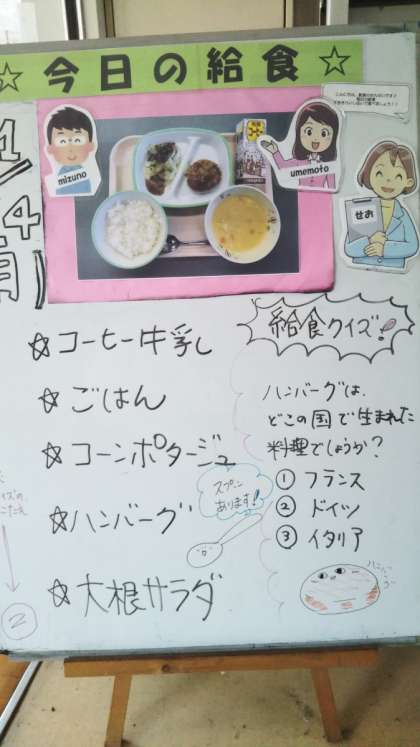 ☆ 今日の給食 ☆
mizuno
umemoto
せお
給食クイズ!
☆コーヒー牛乳
☆ごはん
☆コーンポタージュ
スプーン
あります!
☆ハンバーグ
☆大根サラダ
ハンバーグは、
どこの国で生まれた
料理でしょうか?
① フランス
② ドイツ
③ イタリア
②